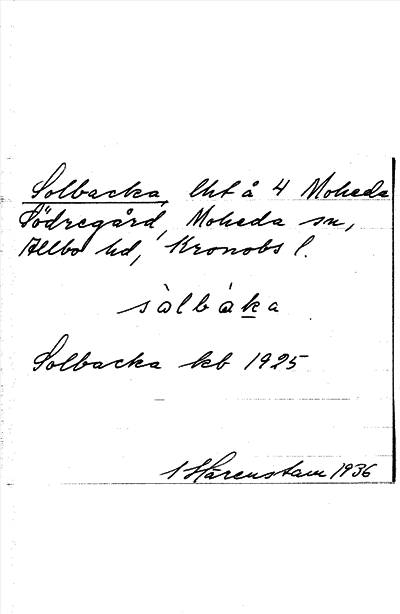 Solbacka, lht å 4 Moheda
Södregård, Moheda sn,
Allbo hd, Kronobs l.
sàlbáka
Solbacka kb 1925
Hårenstam 1936